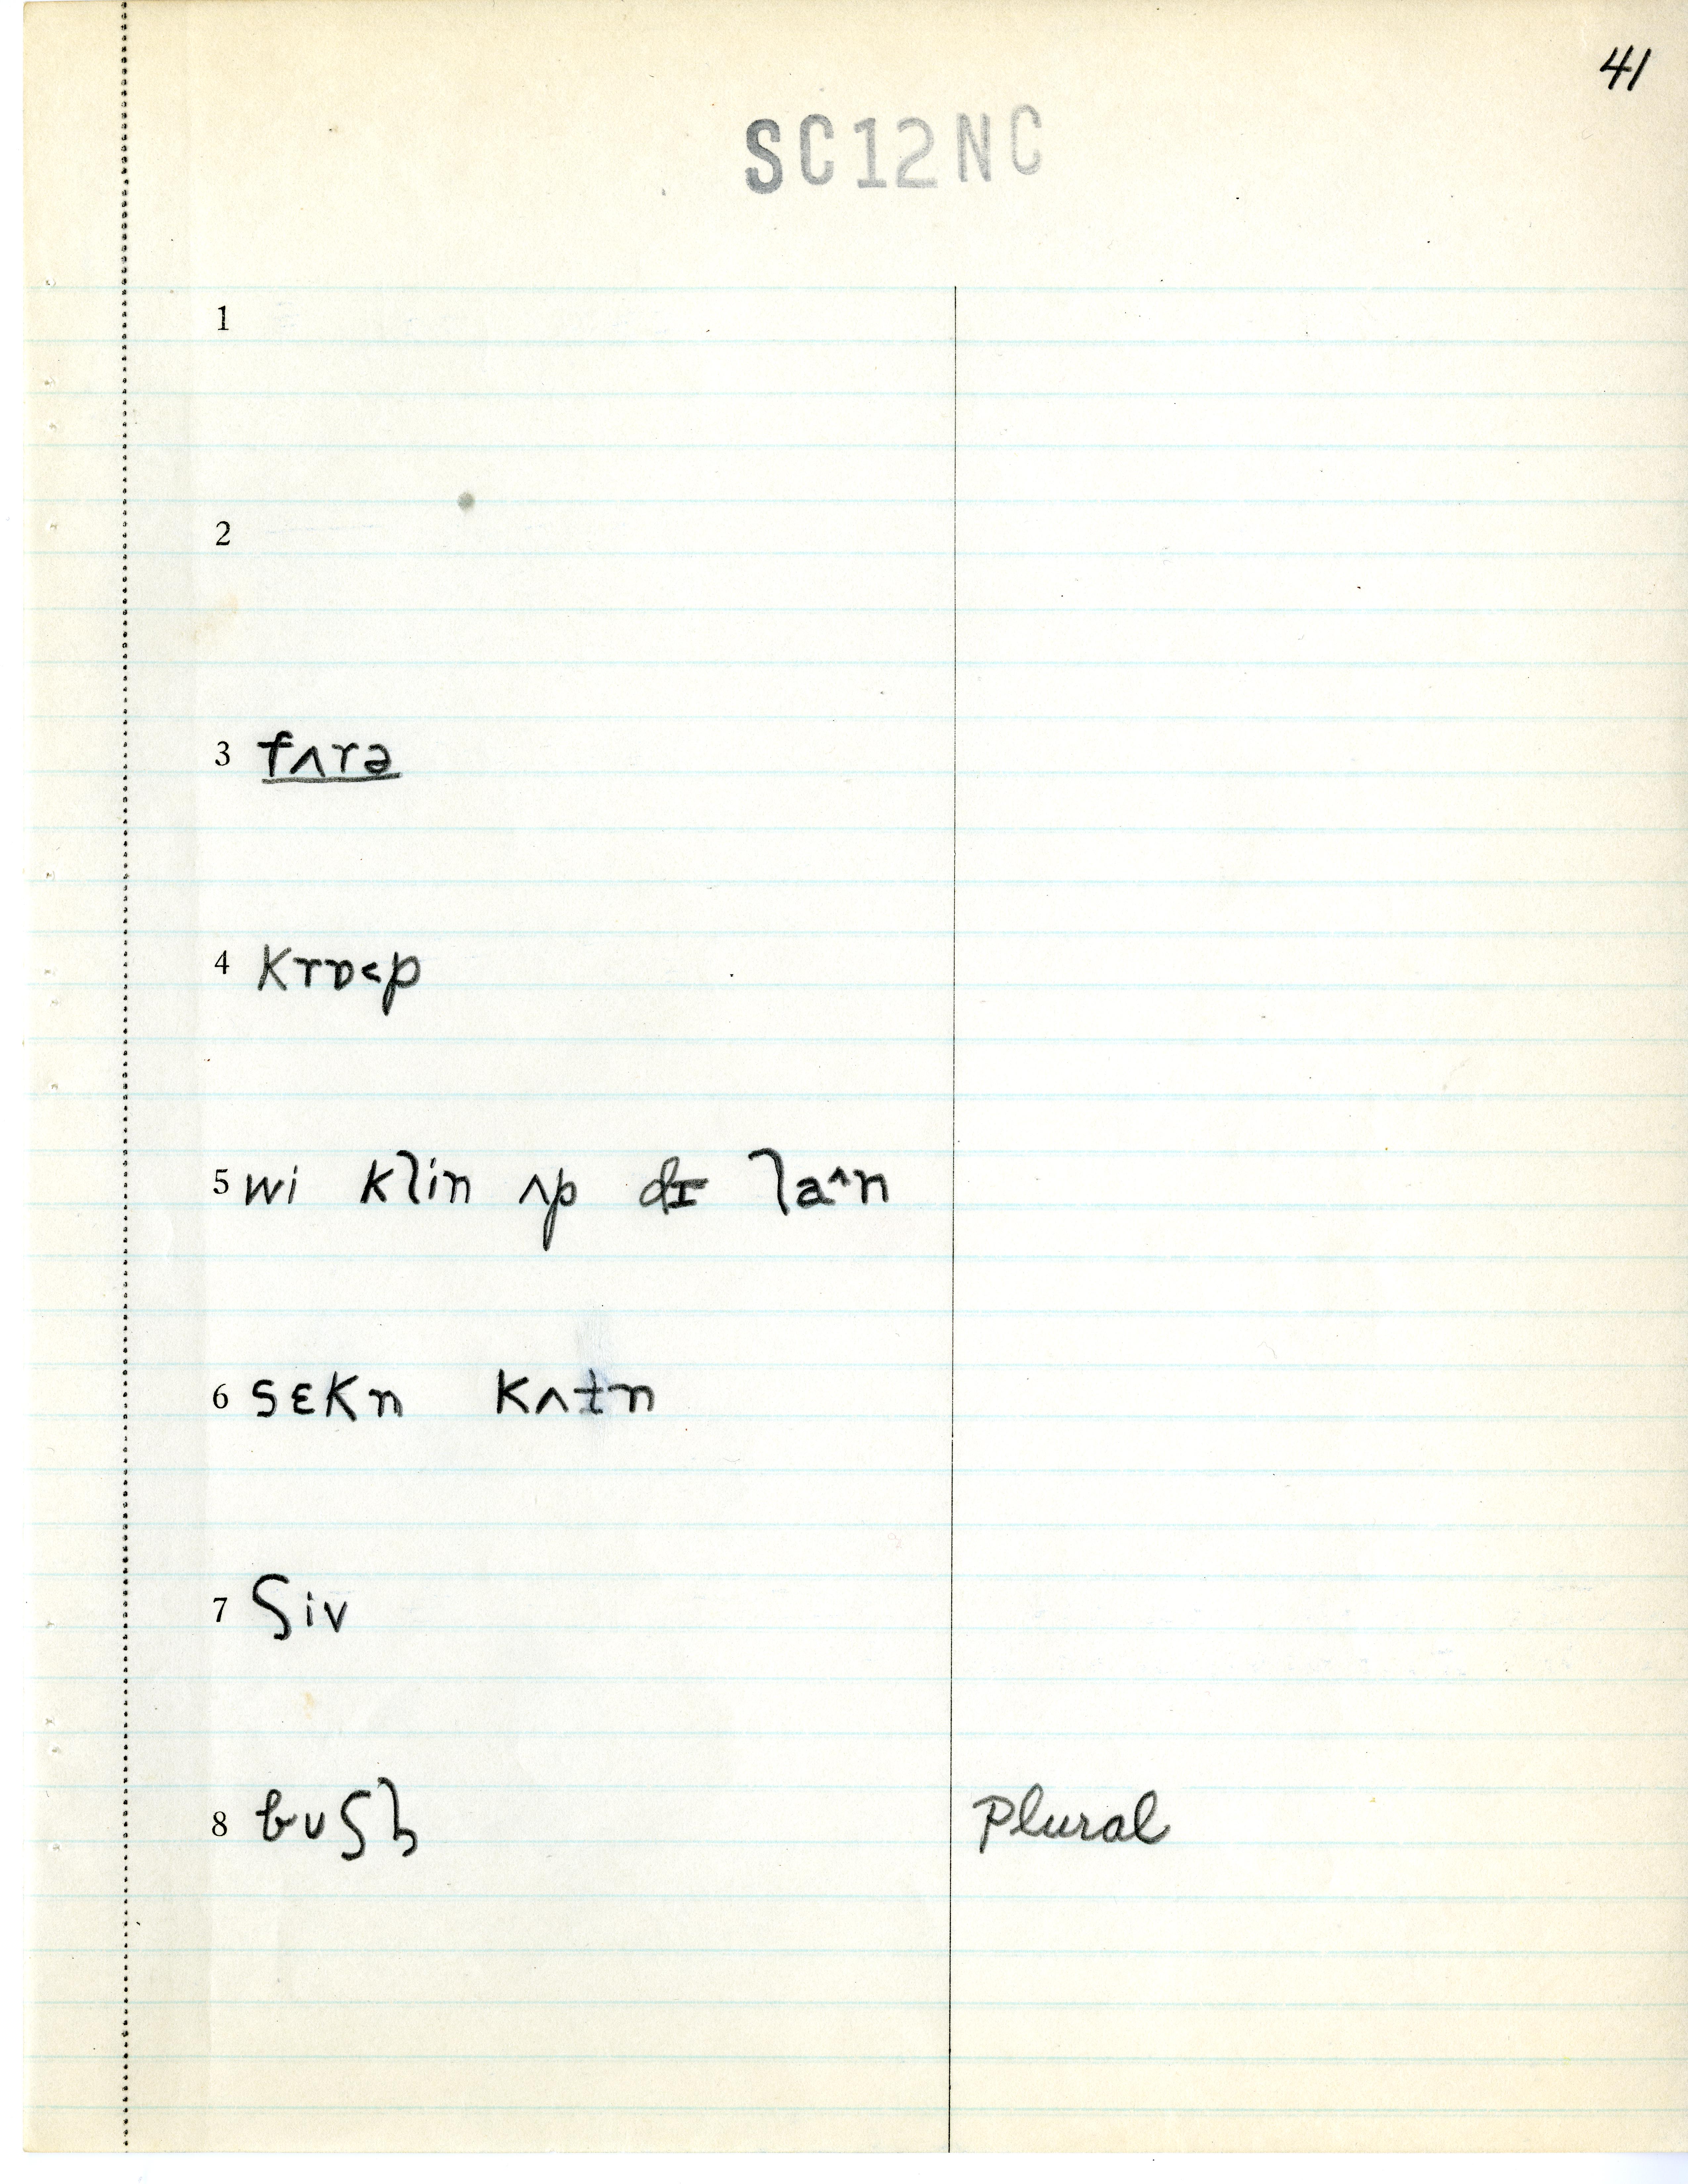 41
SC12NC
1
2
3 fʌrə
4 krɒ˂p
5 wi klin ʌp dɪ laˆn
6 sɛkn kʌtn
7 ʃiv
8 bʊʃɮ Plural